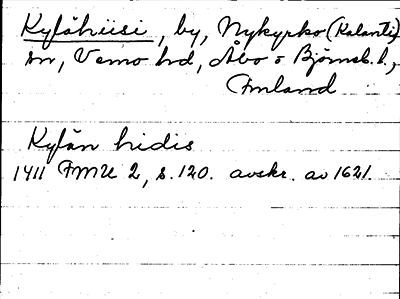 Kylähiisi, by, Nykyrko (Kalanti)
sn, Vemo hd, Åbo o Björneb. l.,
Finland
Kylän hidis
1411 FMU 2, s. 120. avskr. av 1621.